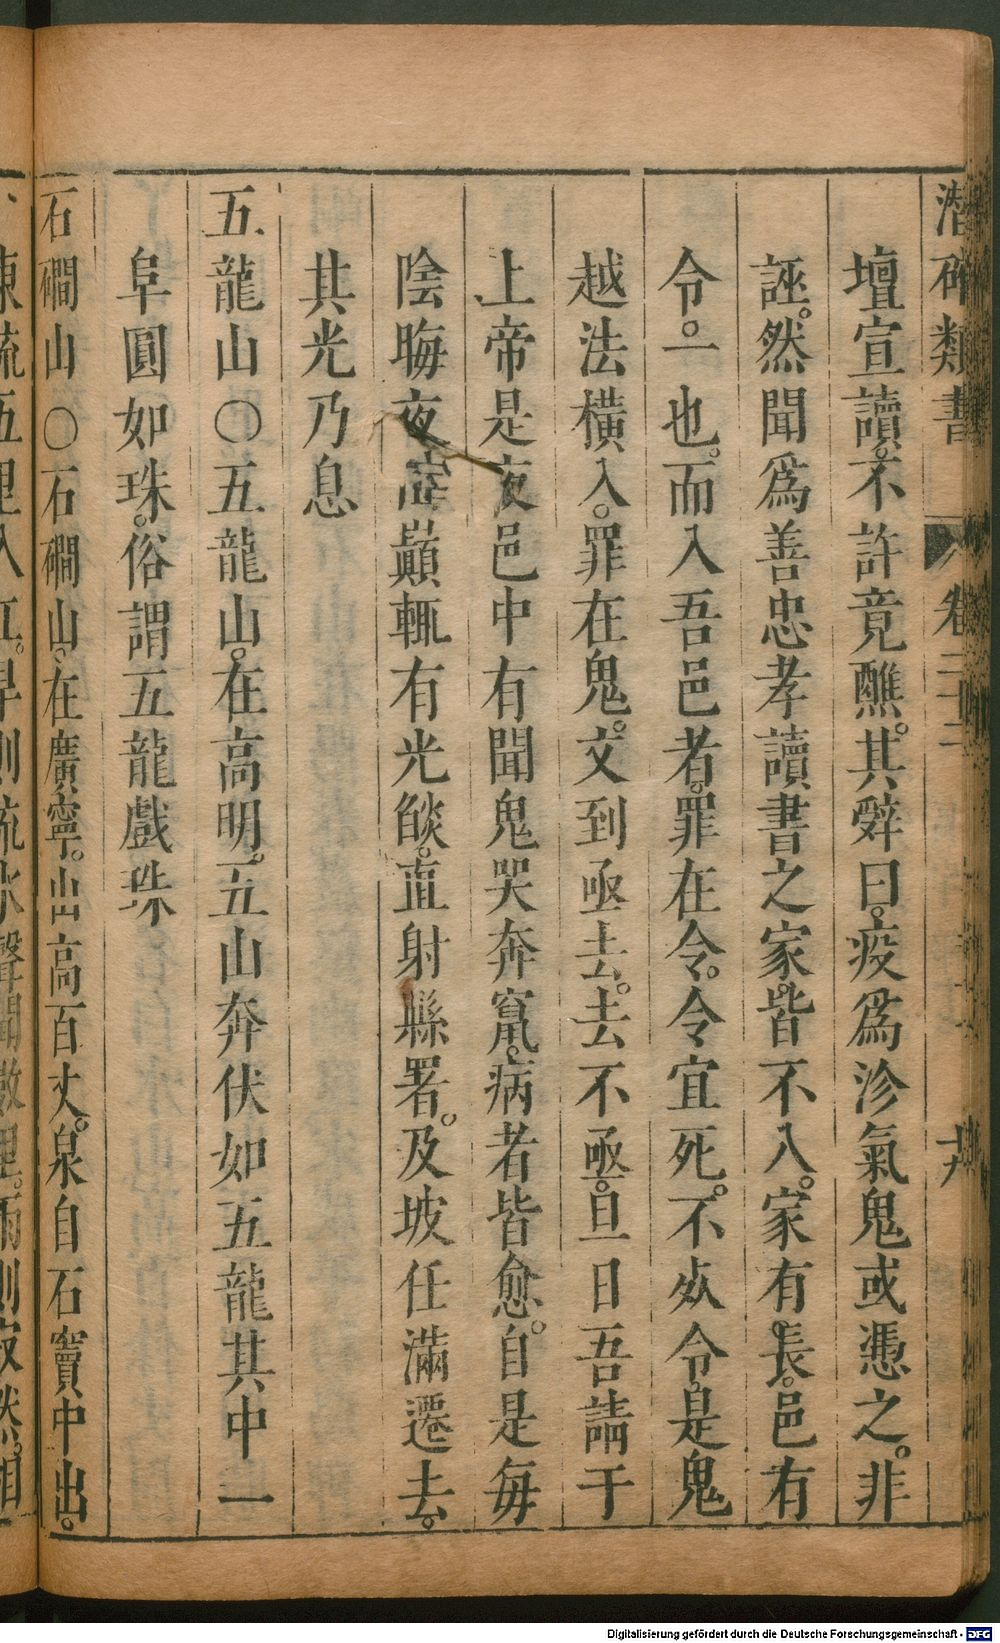 潛確類書 卷二十二 廿
壇宣讀。不許竟醮。其辭曰。疫爲沴氣鬼或憑之。非
誣。然聞爲善忠孝讀書之家。皆不入。家有長。邑有
令。一也。而入吾邑者。罪在令。令宜死。不必令。是鬼
越法橫入。罪在鬼。文到亟去。去不亟。旦日吾請于
上帝是夜邑中有聞鬼哭奔竄。病者皆愈。自是每
陰晦夜 巔輒有光燄。直射縣署。及坡任滿遷去。
其光乃息
五龍山○五龍山。在高明。五山奔伏如五龍其中一
阜圓如珠。俗謂五龍戲珠
石磵山○石磵山。在廣寧。山高百丈。泉自石竇中出。
東流五里入江。旱則流水聲聞數里。雨則寂然。相
Digitalisierung gefördert durch die Deutsche Forschungsgemeinschaft - DFG